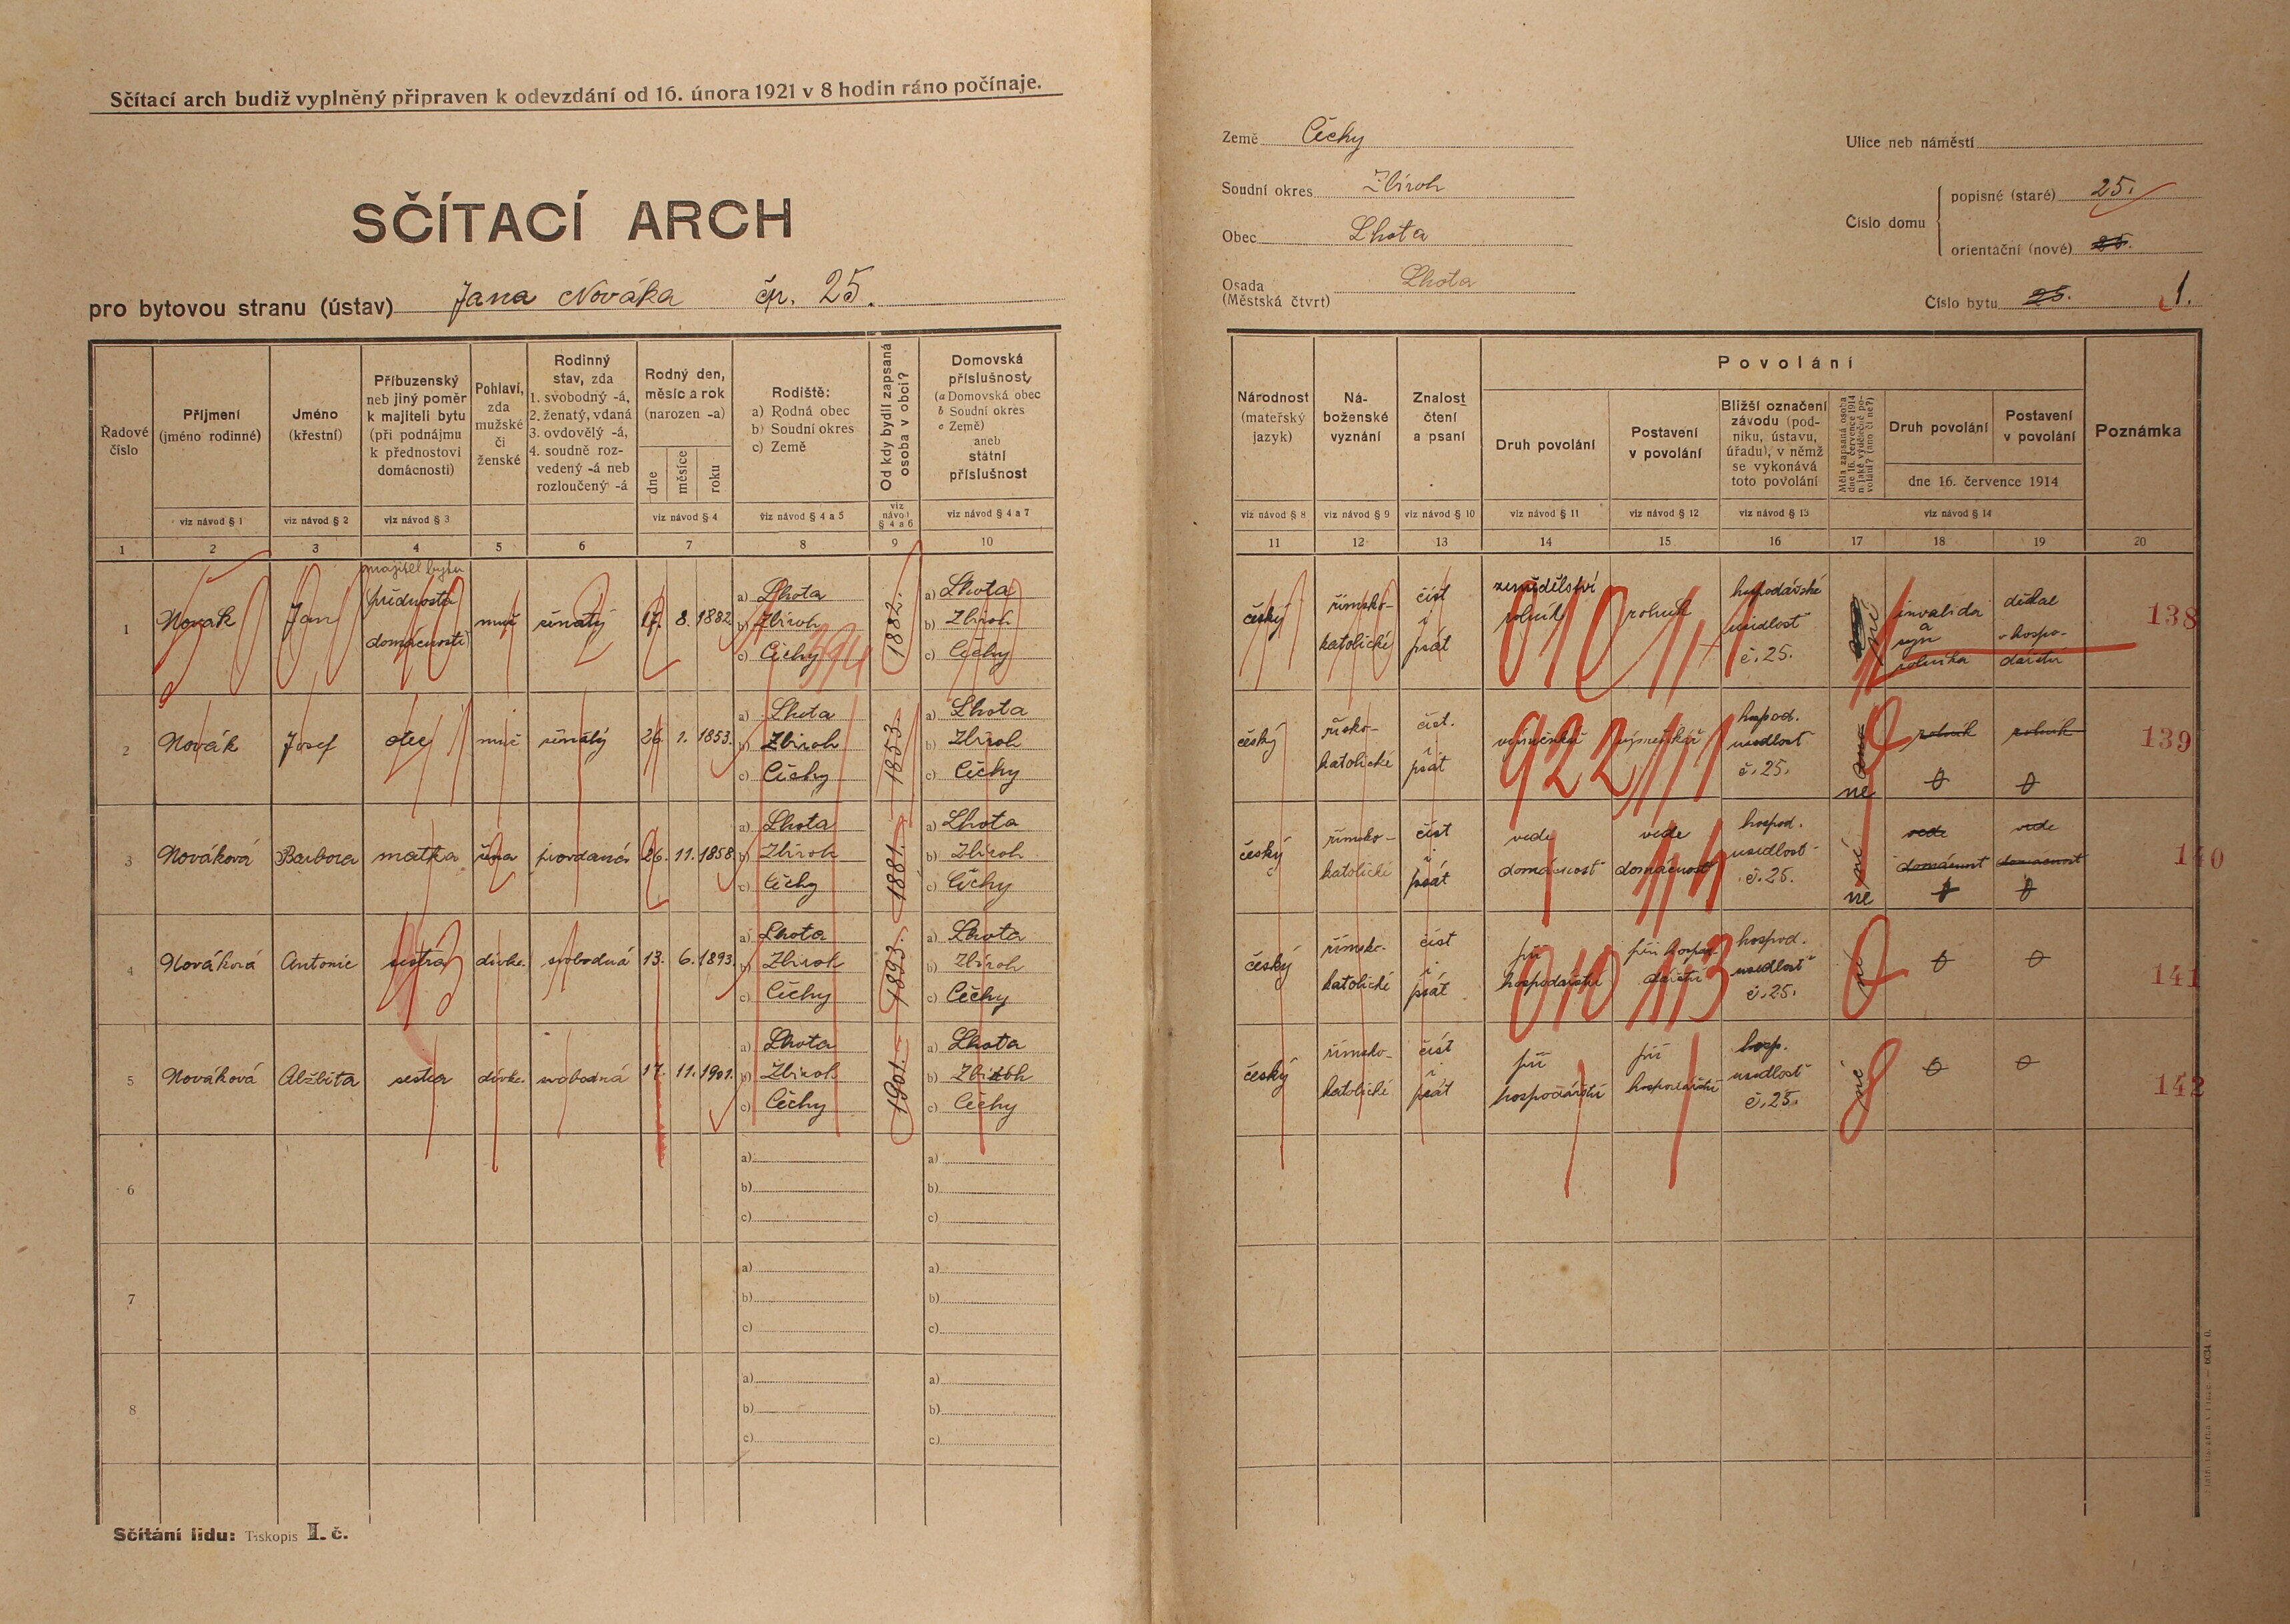 Sčítací arch budiž vyplněný připraven k odevzdání od 16. února 1921 v 8 hodin ráno počínaje.
SČÍTACÍ ARCH
pro bytovou stranu (ústav) Jana Nováka čp. 25.
Řadové číslo
Příjmení (jméno rodinné)
Jméno (křestní)
Příbuzenský neb jiný poměr k majiteli bytu (při podnájmu k přednostovi domácnosti)
Pohlaví, zda mužské či ženské
Rodinný stav, zda 1. svobodný -á, 2. ženatý, vdaná 3. ovdovělý -á, 4. soudně rozvedený -á neb rozloučený -á
Rodný den, měsíc a rok (narozen -a)
dne měsíce roku
Rodiště: a) Rodná obec b) Soudní okres c) Země
Od kdy bydlí zapsaná osoba v obci?
Domovská příslušnost (a Domovská obec b Soudní okres c Země) aneb státní příslušnost
viz návod § 1 viz návod § 2 viz návod § 3 viz návod § 4 viz návod § 4 a 5 viz návod § 4 a 6 viz návod § 4 a 7
1 2 3 4 5 6 7 8 9 10
1 Novák Jan majitel bytu přednosta domácnosti muž ženatý 17. 8. 1882
a) Lhota b) Zbiroh c) Čechy 394
1882.
a) Lhota b) Zbiroh c) Čechy
2 Novák Josef otec muž ženatý 26. 1. 1853.
a) Lhota b) Zbiroh c) Čechy
1853.
a) Lhota b) Zbiroh c) Čechy
3 Nováková Barbora matka žena provdaná 26. 11. 1858
a) Lhota b) Zbiroh c) Čechy
1881.
a) Lhota b) Zbiroh c) Čechy
4 Nováková Antonie sestra dívka. svobodná 13. 6. 1893
a) Lhota b) Zbiroh c) Čechy
1893.
a) Lhota b) Zbiroh c) Čechy
5 Nováková Alžběta sestra dívka. svobodná 17. 11. 1901.
a) Lhota b) Zbiroh c) Čechy
1901.
a) Lhota b) Zbiroh c) Čechy
6 a) b) c) a) b) c)
7 a) b) c) a) b) c)
8 a) b) c) a) b) c)
Sčítání lidu: Tiskopis II. č.
Země Čechy
Soudní okres Zbiroh
Obec Lhota
Osada (Městská čtvrt) Lhota
Ulice neb náměstí
Číslo domu
popisné (staré) 25.
orientační (nové) 25.
Číslo bytu 25. 1.
Národnost (mateřský jazyk)
Náboženské vyznání
Znalost čtení a psaní
Povolání
Druh povolání
Postavení v povolání
Bližší označení závodu (podniku, ústavu, úřadu), v němž se vykonává toto povolání
Měla zapsaná osoba dne 16. července 1914 n. jaké výdělečné povolání? (ano či ne?)
Druh povolání
Postavení v povolání
dne 16. července 1914
Poznámka
viz návod § 8 viz návod § 9 viz návod § 10 viz návod § 11 viz návod § 12 viz návod § 13 viz návod § 14
11 12 13 14 15 16 17 18 19 20
český římsko-katolické číst i psát zemědělství rolník rolník hospodářská usedlost č. 25. né invalida a syn rolníka dělal v hospodářství 138
010 1
český římsko-katolické číst. i psát výměnkář výměnkář hospod. usedlost č. 25. ano ne rolník 0 rolník 0 139
922
český římsko-katolické číst i psát vede domácnost vede domácnost hospod. usedlost č. 25. né ne vede domácnost 0 vede domácnost 0 140
český římsko-katolické číst i psát při hospodářství při hospodářství hospod. usedlost č. 25. né 0 0 141
010 113
český římsko-katolické číst i psát při hospodářství při hospodářství hosp. usedlost č. 25. né 0 0 142